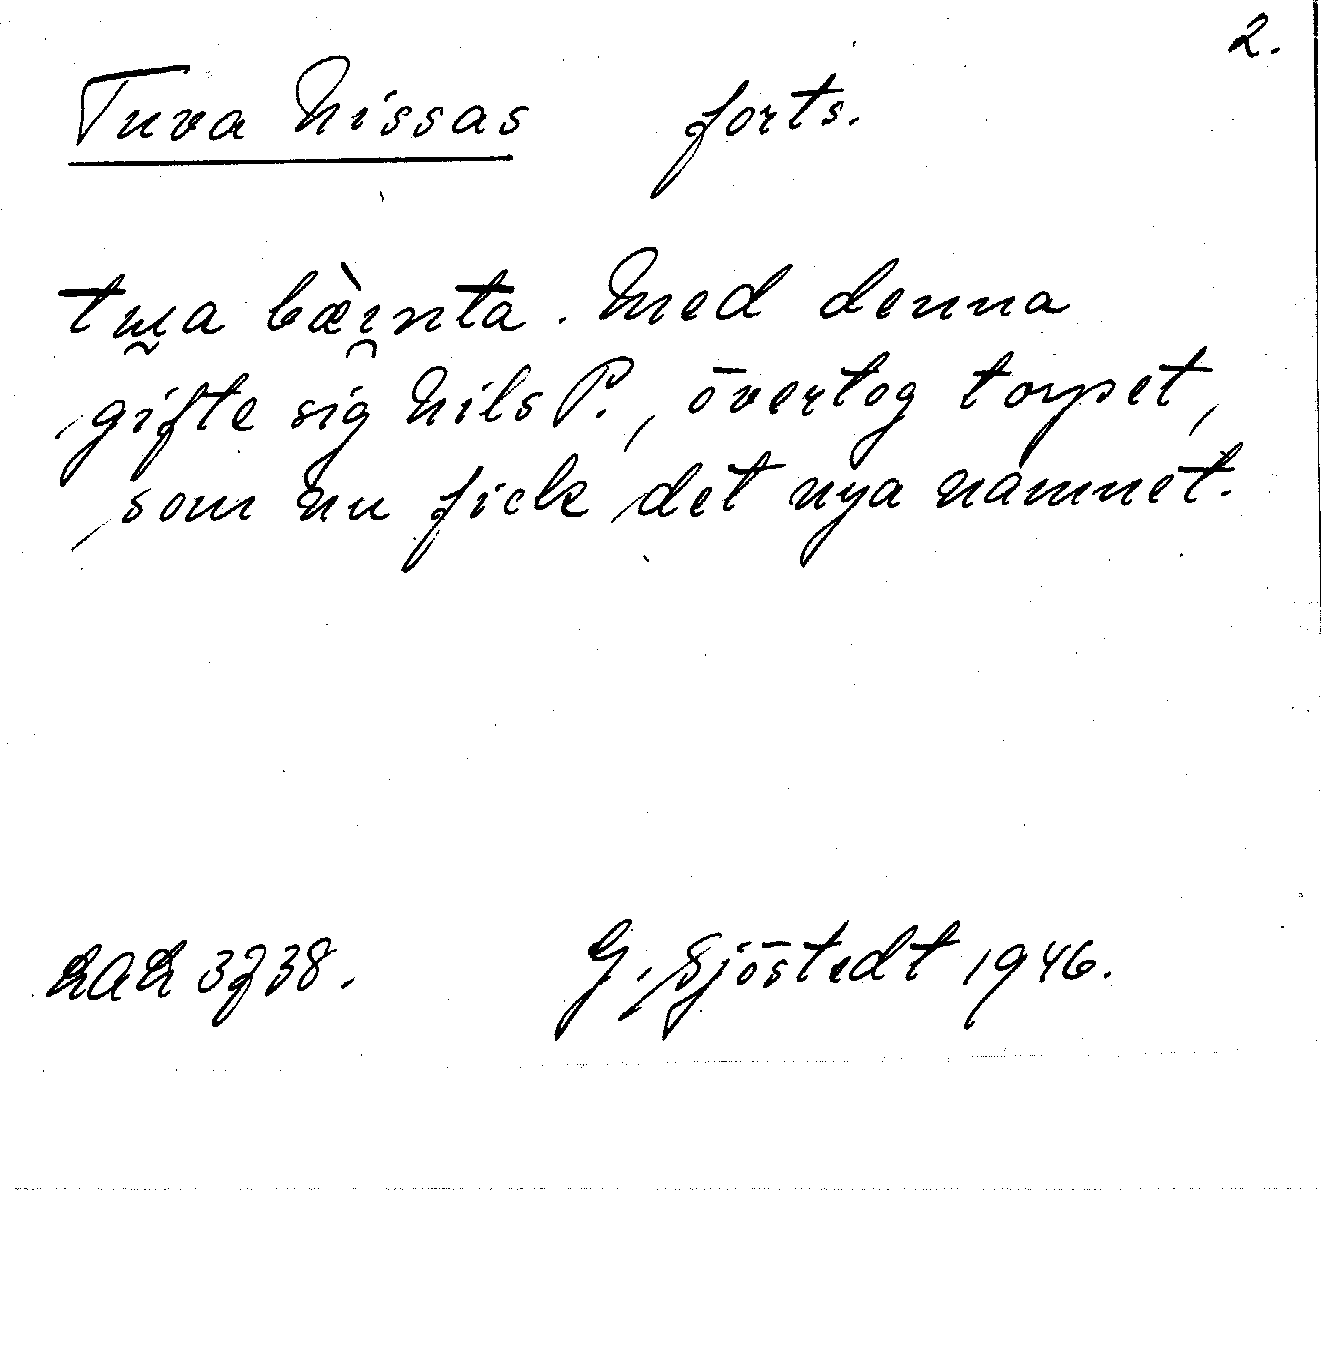 2.
Tuva Nissas forts.
tɯ̰a bæ̀ı̯nta. Med denna
gifte sig Nils P., övertog torpet,
som nu fick det nya namnet.
G. Sjöstedt 1946.